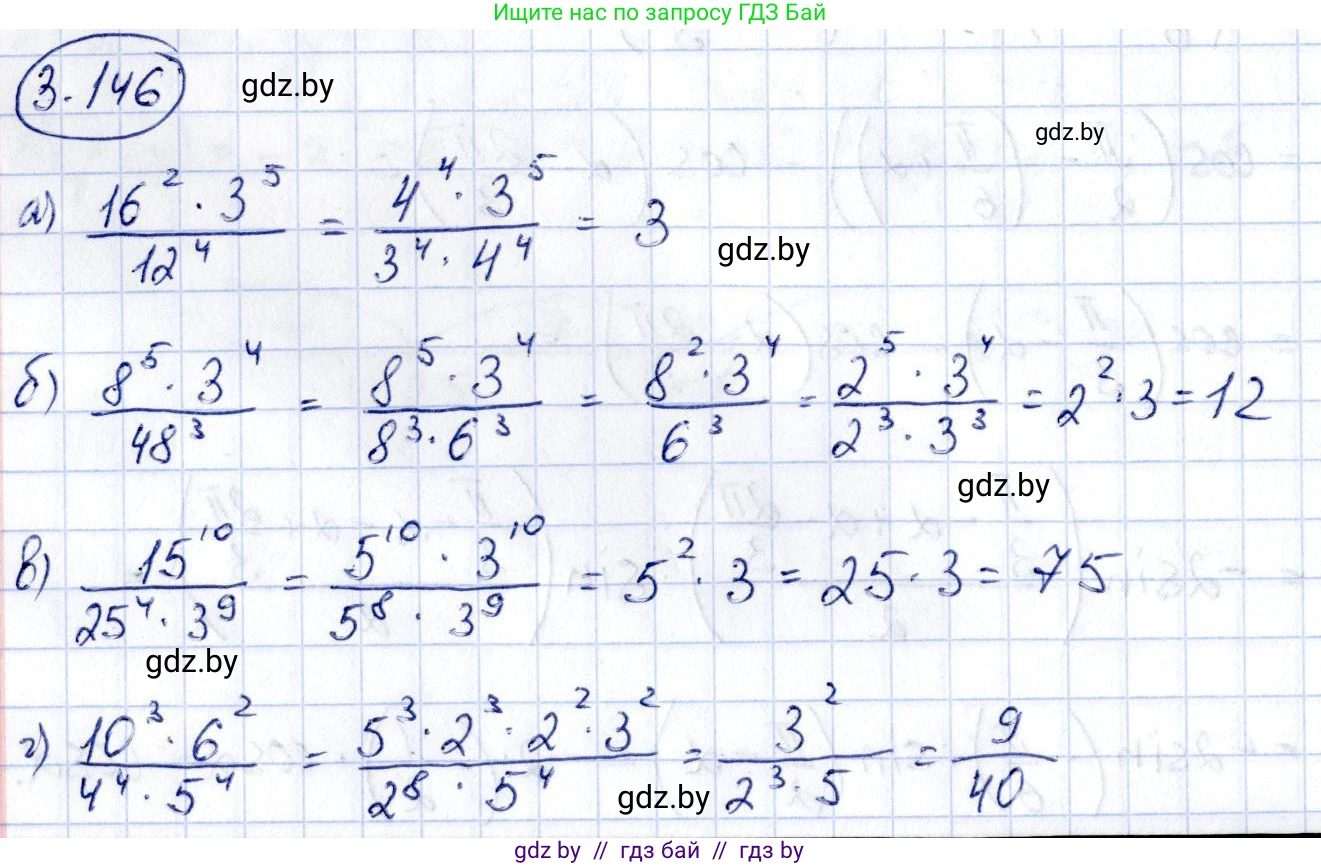 Ищите нас по запросу ГДЗ Бай
3.146 gdz.by
gdz.by
а) 16² · 3⁵ / 12⁴ = 4⁴ · 3⁵ / 3⁴ · 4⁴ = 3
gdz.by
б) 8⁵ · 3⁴ / 48³ = 8⁵ · 3⁴ / 8³ · 6³ = 8² · 3⁴ / 6³ = 2⁵ · 3⁴ / 2³ · 3³ = 2² · 3 = 12
gdz.by
в) 15¹⁰ / 25⁴ · 3⁹ = 5¹⁰ · 3¹⁰ / 5⁸ · 3⁹ = 5² · 3 = 25 · 3 = 75
gdz.by
г) 10³ · 6² / 4⁴ · 5⁴ = 5³ · 2³ · 2² · 3² / 2⁸ · 5⁴ = 3² / 2³ · 5 = 9 / 40
gdz.by
gdz by // гдз бай // гдз by